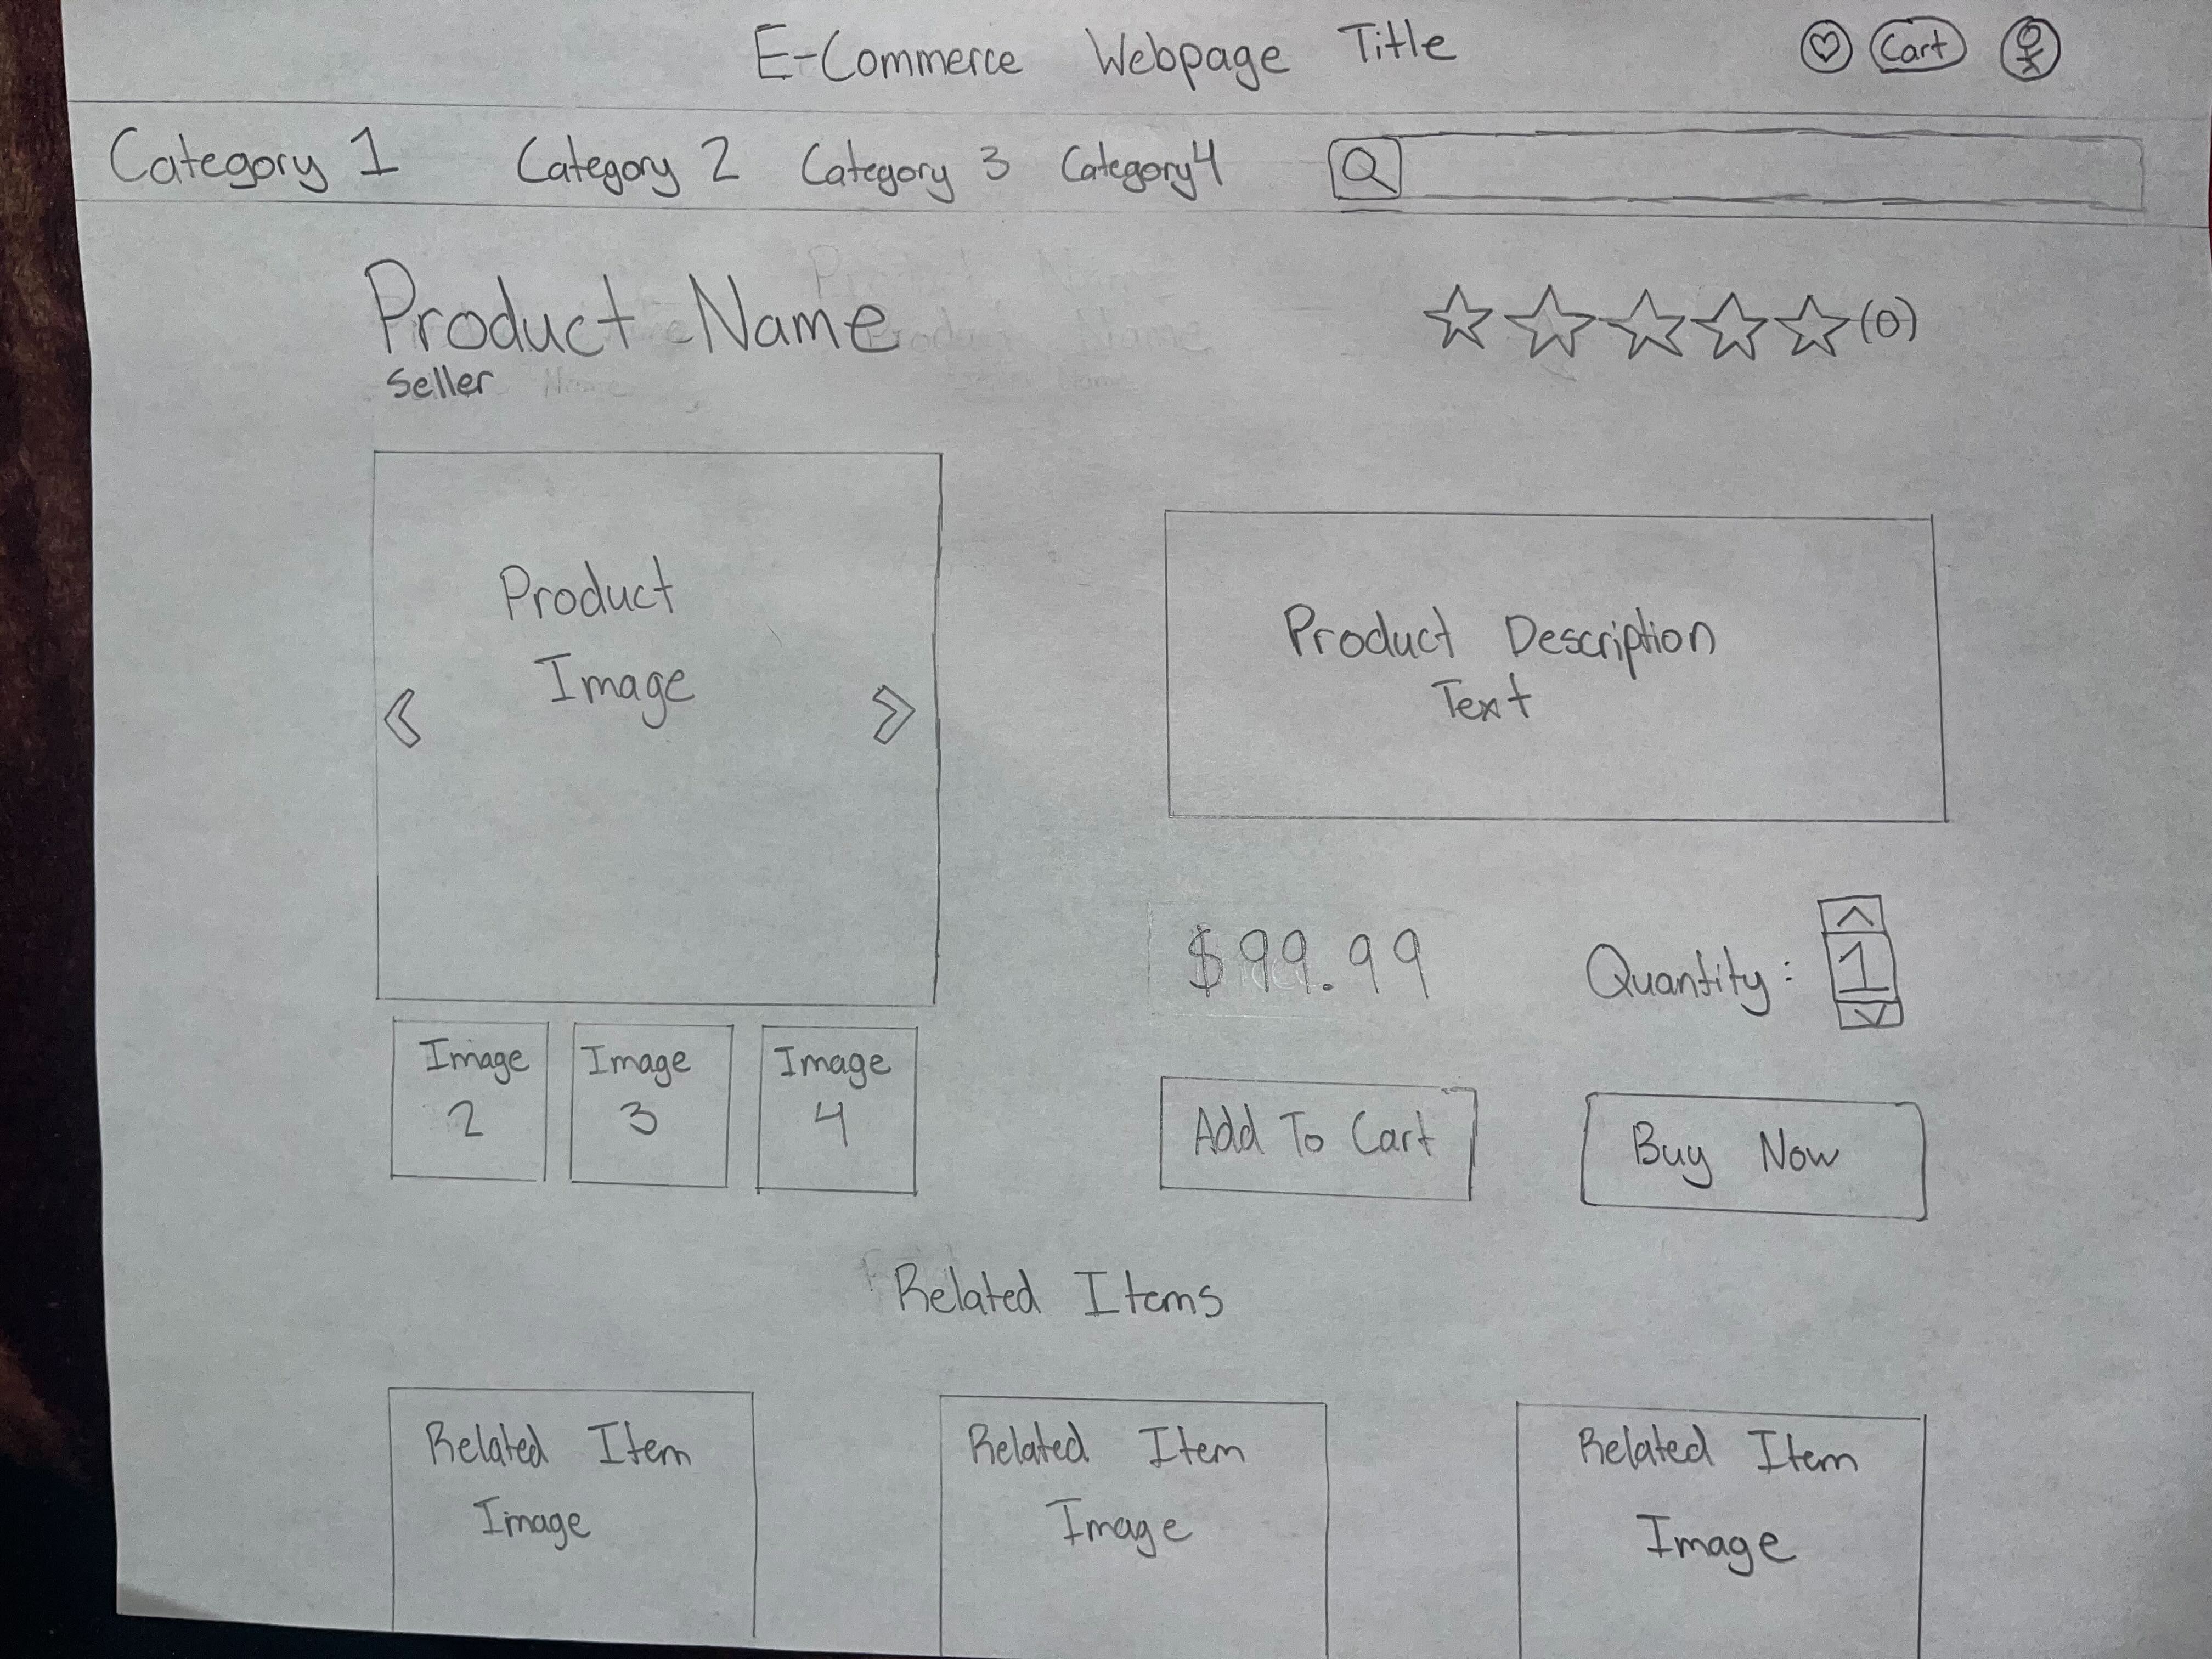 E-Commerce Webpage Title
Cart
Category 1 Category 2 Category 3 Category 4
Product Name
(0)
Seller
Product
Image
Product Description
Text
$99.99
Quantity: 1
Image
2
Image
3
Image
4
Add To Cart
Buy Now
Related Items
Related Item
Image
Related Item
Image
Related Item
Image